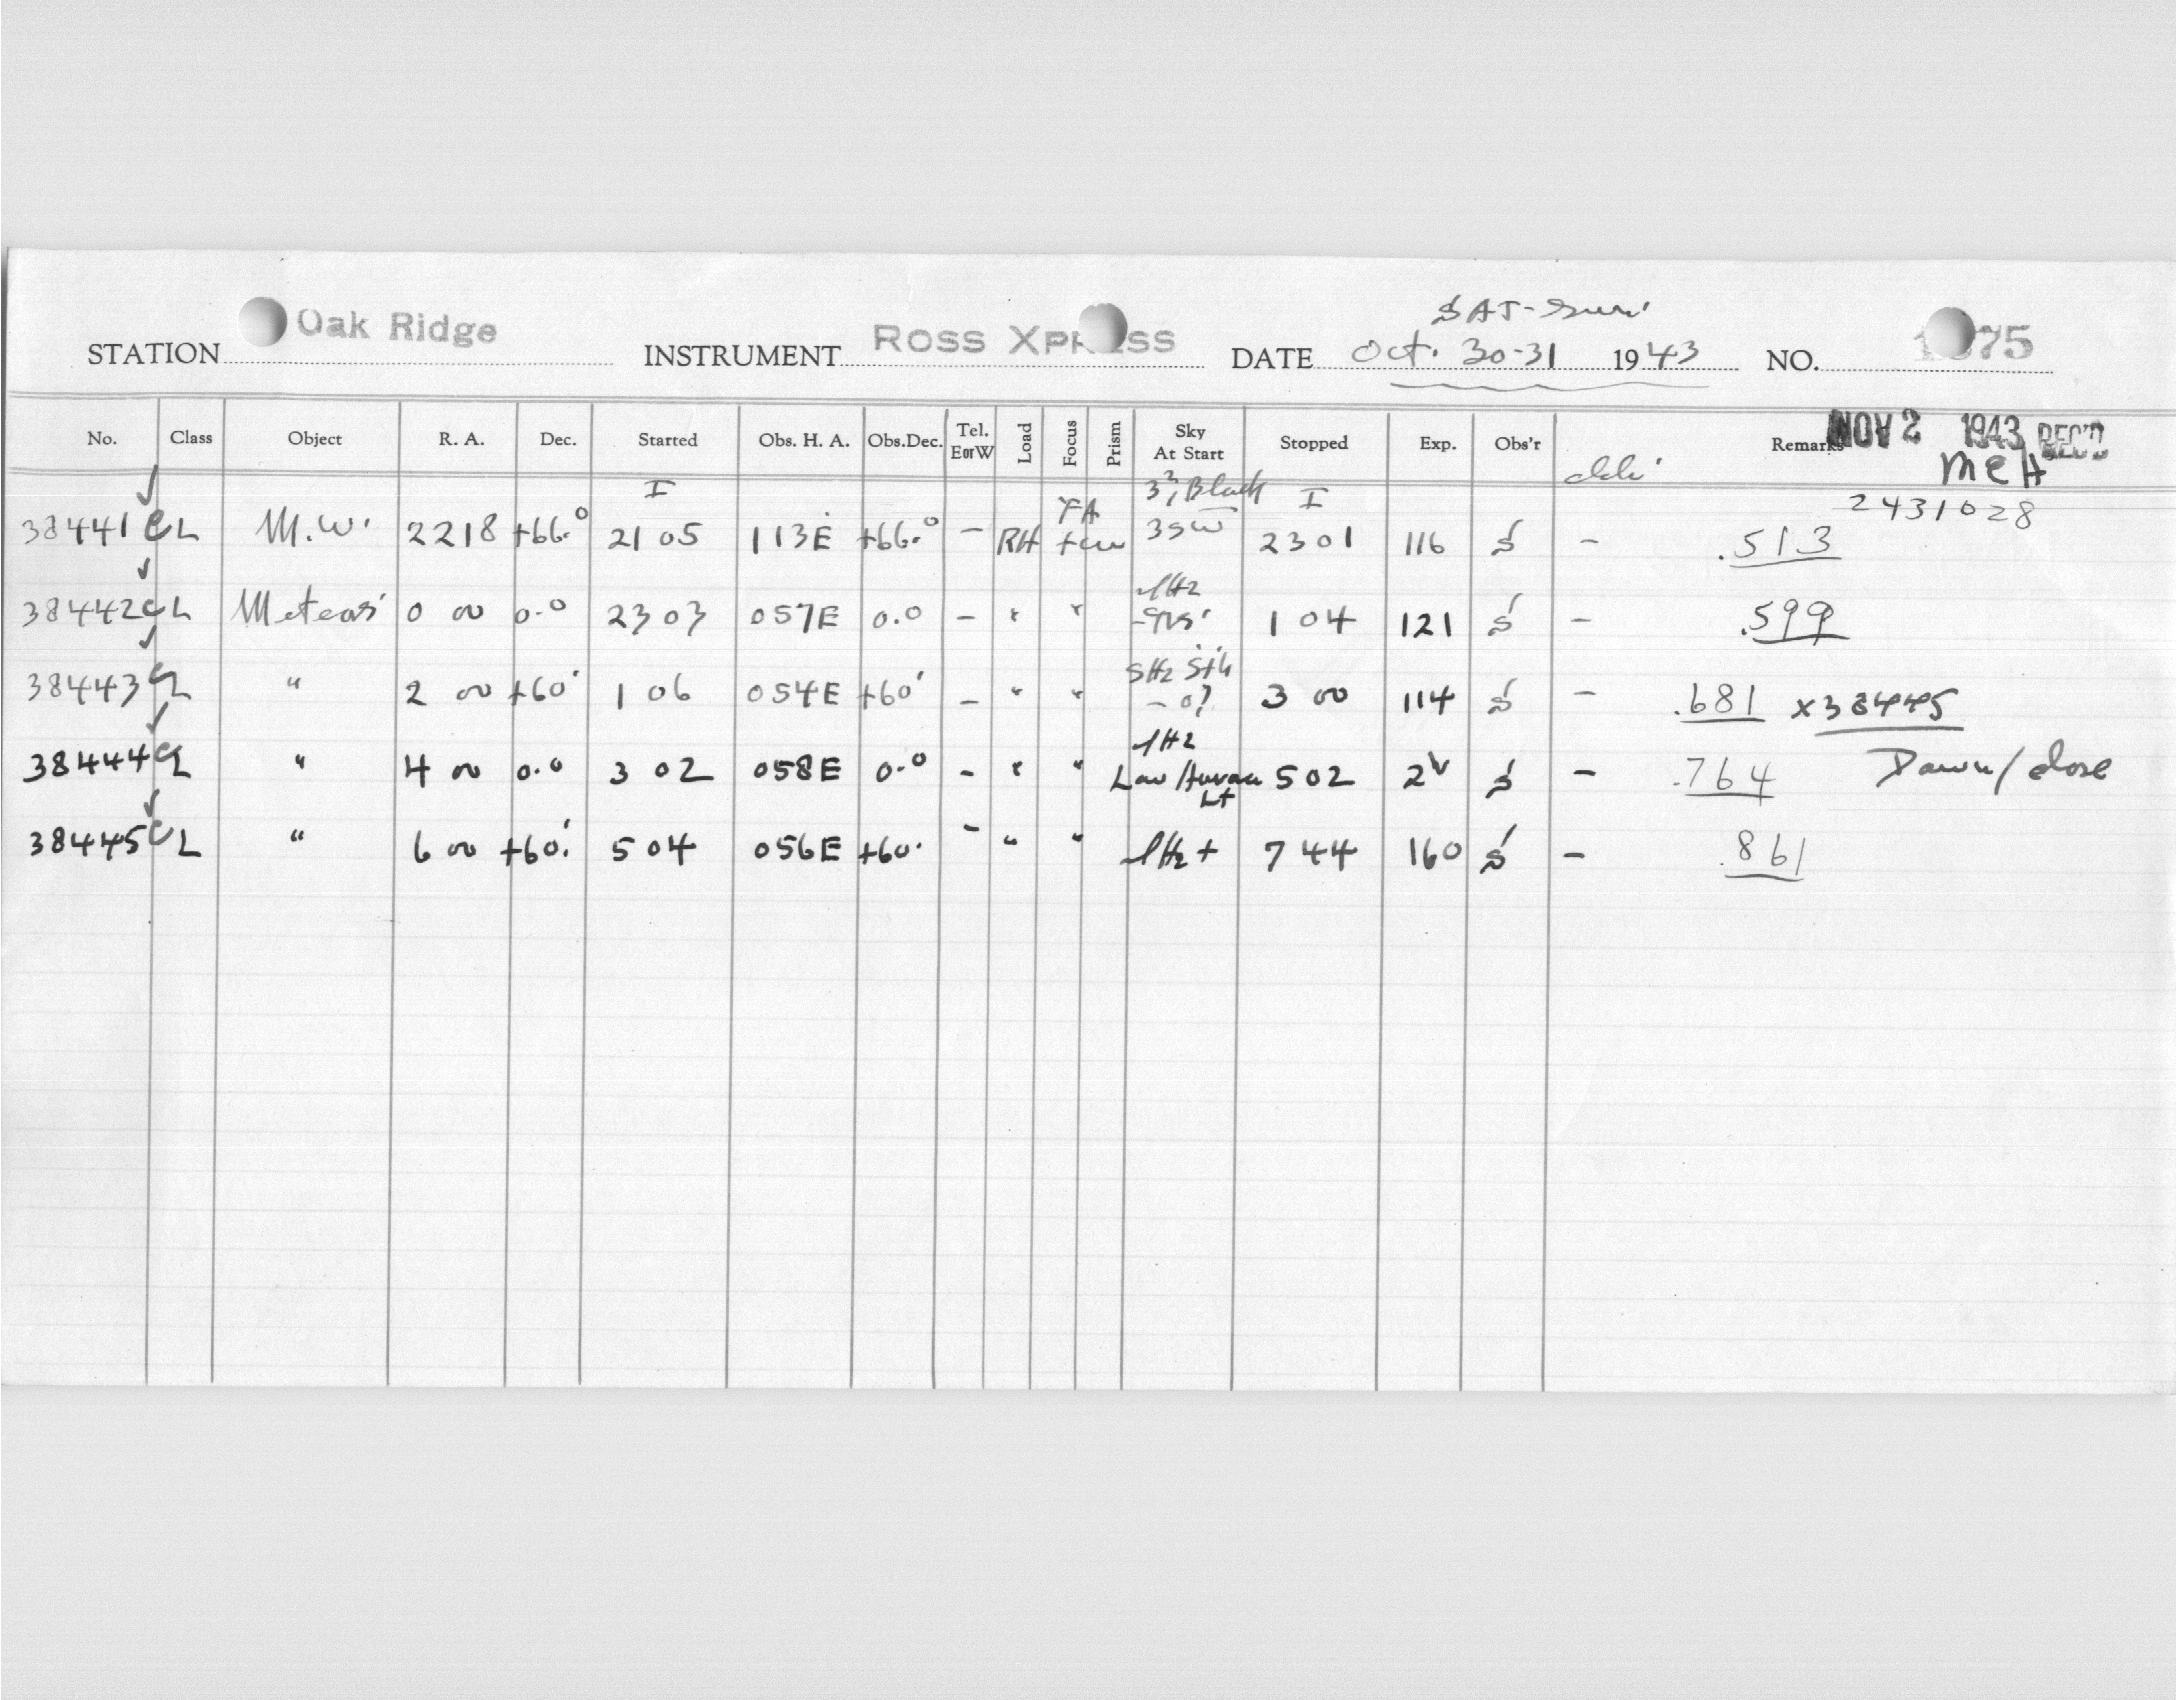 SAT-Sun.
STATION Oak Ridge INSTRUMENT ROSS XPRESS DATE Oct. 30-31 1943 NO. 75
No. Class Object R. A. Dec. Started Obs. H. A. Obs. Dec. Tel. E or W Load Focus Prism Sky At Start Stopped Exp. Obs'r Remarks NOV 2 1943 REC'D
MCH
2431028
38441 CL M.W. 2218 +66.° I 2105 113E +66.° - RH FA 3², Black 3sw I 2301 116 S - .513
38442 CL Meteors 0 00 0.0 2303 057E 0.0 - " " 1 04 121 S - .599
38443 CL " 2 00 +60 1 06 054E +60 - " " SHz Sth - 0? 3 00 114 S - .681 x38445
38444 CL " 4 00 0.0 3 02 058E 0.0 - " " Low/Aurora Lt 5 02 2 S - .764 Dawn/close
38445 CL " 6 00 +60. 5 04 056E +60. - " " 7 44 160 S - .861